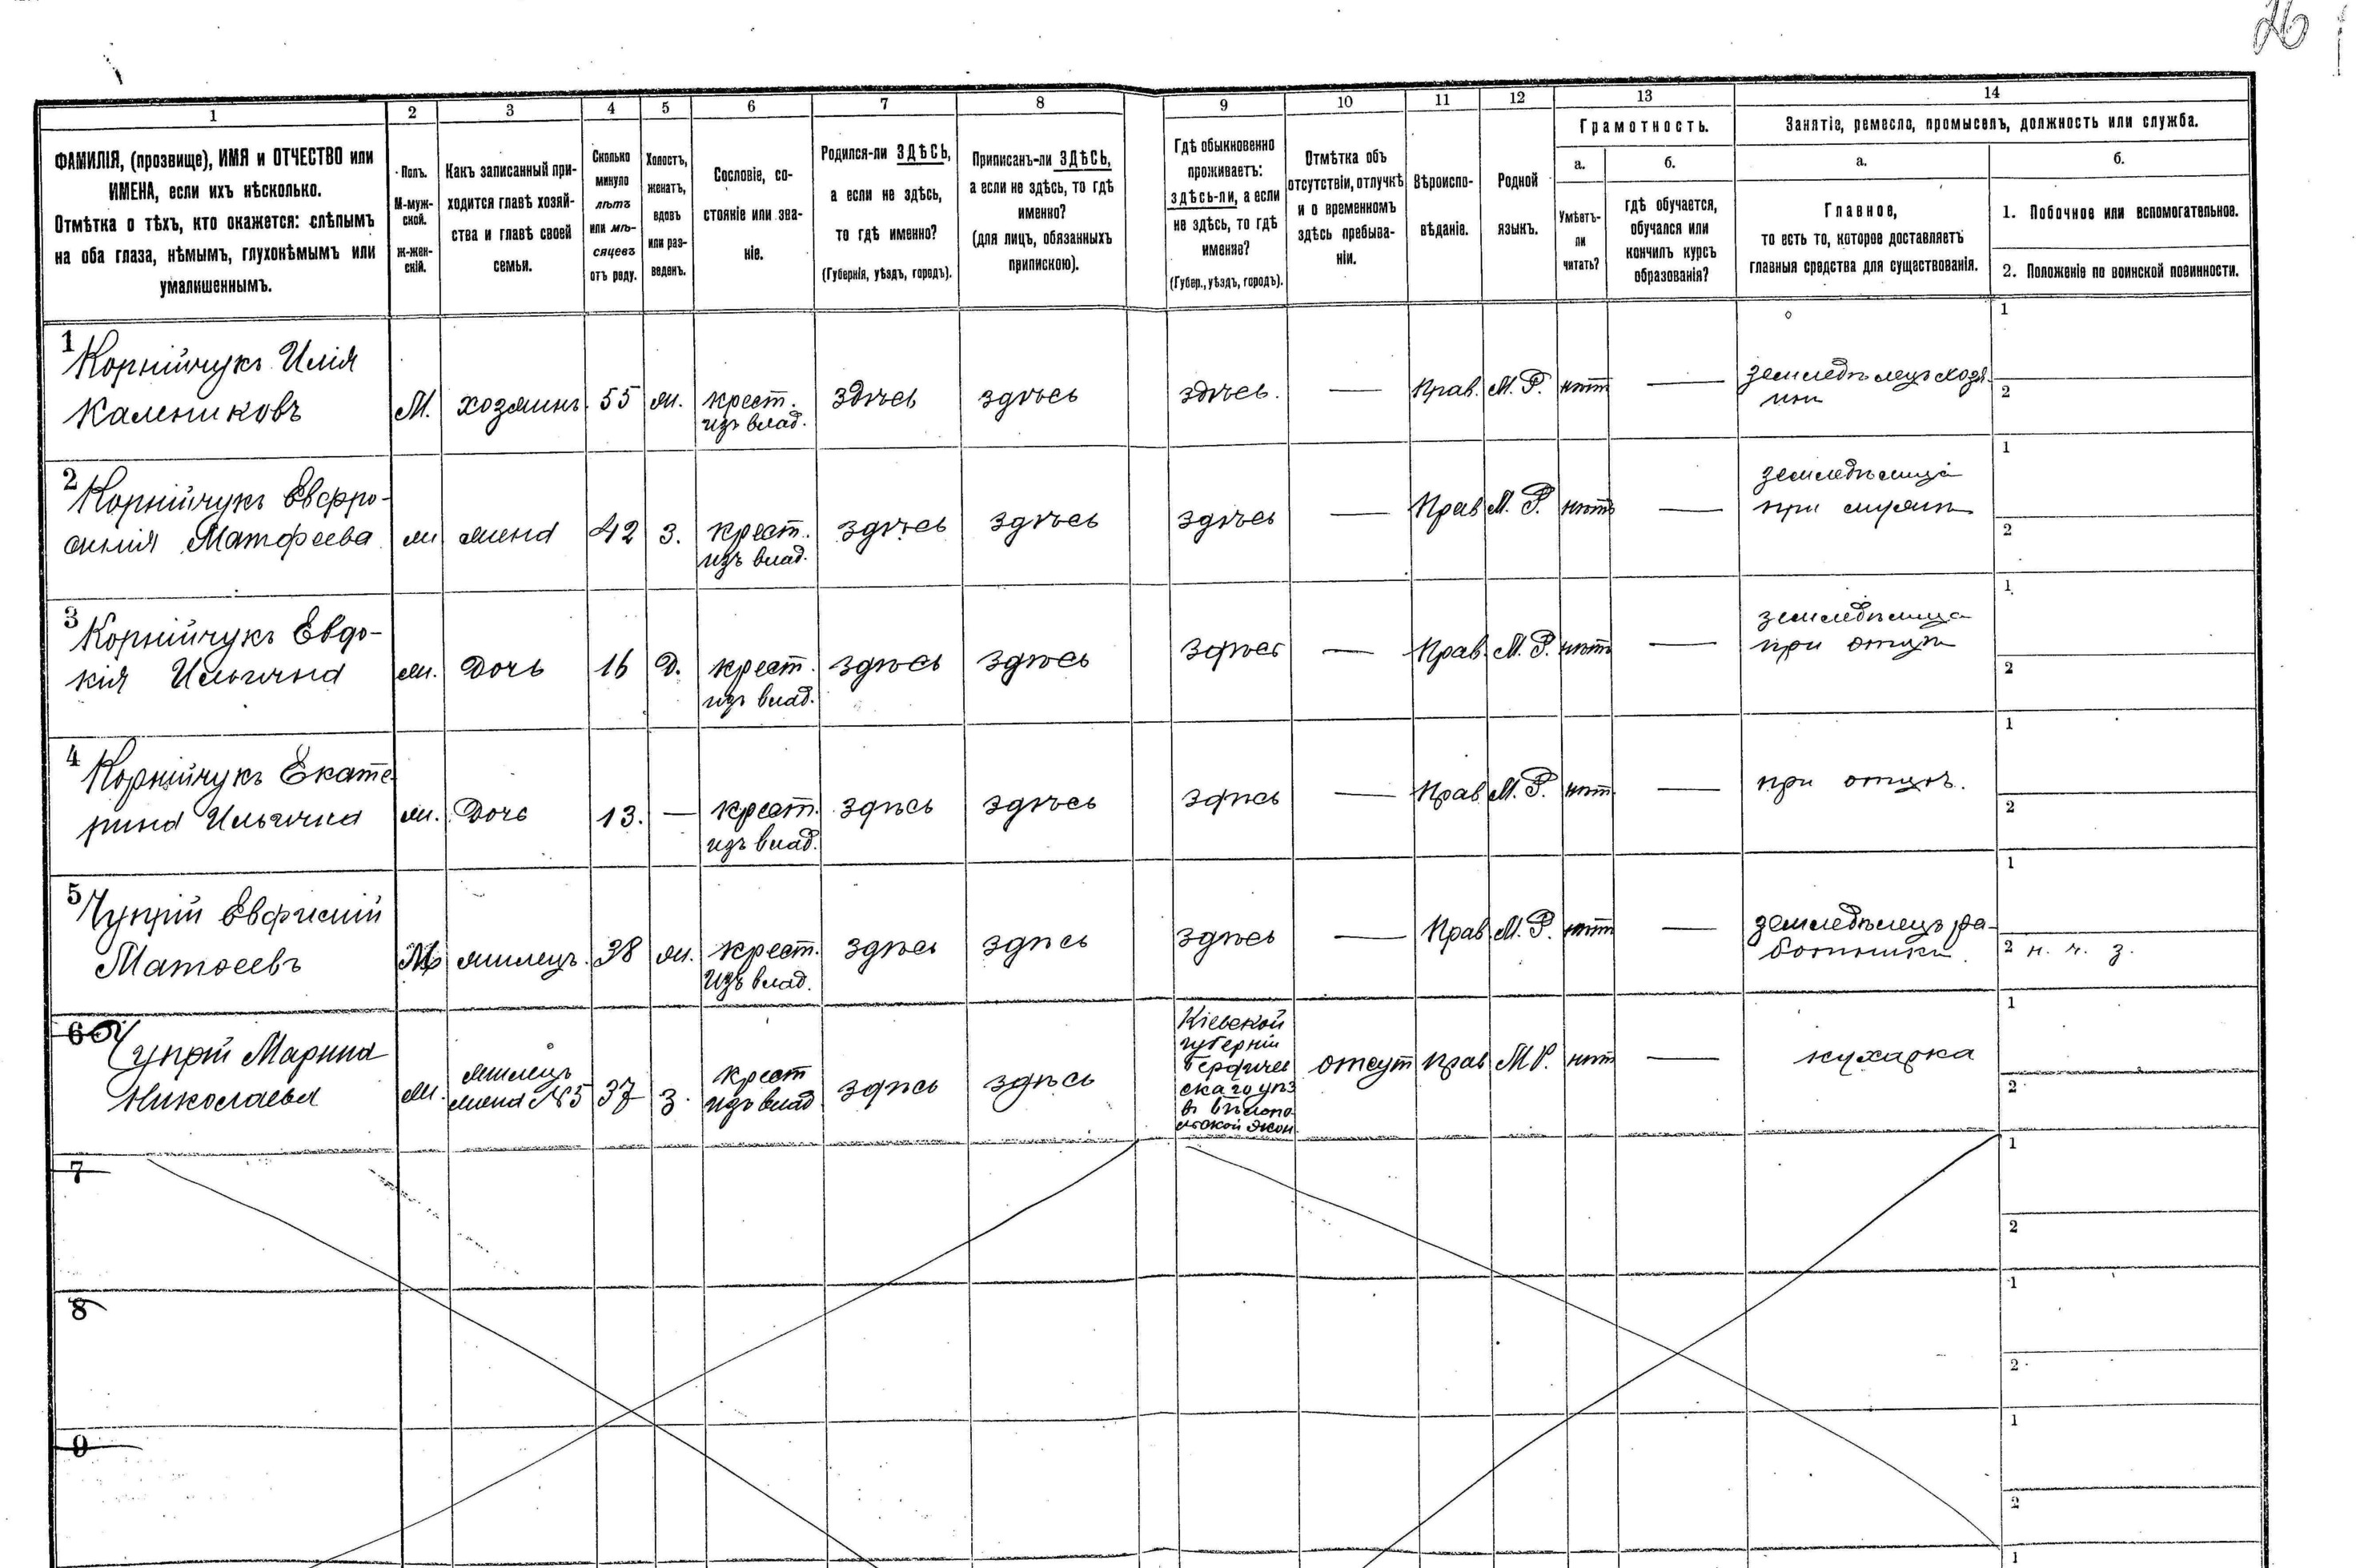 26
1 2 3 4 5 6 7 8 9 10 11 12 13 14
ФАМИЛІЯ, (прозвище), ИМЯ и ОТЧЕСТВО или
ИМЕНА, если ихъ нѣсколько.
Отмѣтка о тѣхъ, кто окажется: слѣпымъ
на оба глаза, нѣмымъ, глухонѣмымъ или
умалишеннымъ.
Полъ.
М-муж-
ской.
ж-жен-
скій.
Какъ записанный при-
ходится главѣ хозяй-
ства и главѣ своей
семьи.
Сколько
минуло
лѣтъ
или мѣ-
сяцевъ
отъ роду.
Холостъ,
женатъ,
вдовъ
или раз-
веденъ.
Сословіе, со-
стояніе или зва-
ніе.
Родился-ли ЗДѢСЬ,
а если не здѣсь,
то гдѣ именно?
(Губернія, уѣздъ, городъ).
Приписанъ-ли ЗДѢСЬ,
а если не здѣсь, то гдѣ
именно?
(для лицъ, обязанныхъ
припискою).
Гдѣ обыкновенно
проживаетъ:
здѣсь-ли, а если
не здѣсь, то гдѣ
именно?
(Губер., уѣздъ, городъ).
Отмѣтка объ
отсутствіи, отлучкѣ
и о временномъ
здѣсь пребыва-
ніи.
Вѣроиспо-
вѣданіе.
Родной
языкъ.
Грамотность.
а.
Умѣетъ-
ли
читать?
б.
гдѣ обучается,
обучался или
кончилъ курсъ
образованія?
Занятіе, ремесло, промыселъ, должность или служба.
а.
Главное,
то есть то, которое доставляетъ
главныя средства для существованія.
б.
1. Побочное или вспомогательное.
2. Положеніе по воинской повинности.
1
Корнійчукъ Илія
Калениковъ
М.
хозяинъ
55
ж.
крест.
изъ влад.
здѣсь
здѣсь
здѣсь.
—
Прав.
М. Р.
нѣтъ
—
земледѣлецъ хозя-
инъ
1
2
2
Корнійчукъ Евфро-
синія Матфеева
ж
жена
42
З.
крест.
изъ влад.
здѣсь
здѣсь
здѣсь
—
Прав
М. Р.
нѣтъ
—
земледѣлица
при мужѣ
1
2
3
Корнійчукъ Евдо-
кія Ильична
ж.
Дочь
16
Д.
крест.
изъ влад.
здѣсь
здѣсь
здѣсь
—
Прав.
М. Р.
нѣтъ
—
земледѣлица
при отцѣ
1
2
4
Корнійчукъ Екате
рина Ильична
ж.
Дочь
13.
—
крест.
изъ влад.
здѣсь
здѣсь
здѣсь
—
Прав
М. Р.
нѣтъ
—
при отцѣ.
1
2
5
Чупрій Евфимій
Матвеевъ
М
жилецъ.
38
ж.
крест.
изъ влад.
здѣсь
здѣсь
здѣсь
—
Прав
М. Р.
нѣтъ
—
земледѣлецъ ра-
ботникъ.
1
2 н. ч. з.
6
Чупрій Марина
Николаева
ж.
жилецъ
жена №5
37
З.
крест
изъ влад
здѣсь
здѣсь
Кіевской
губерніи
Бердичев
скаго уѣз
в Бѣлопо
льской экон
отсут
прав
М Р.
нѣт
—
кухарка
1
2
7
1
2
8
1
2
9
1
2
1